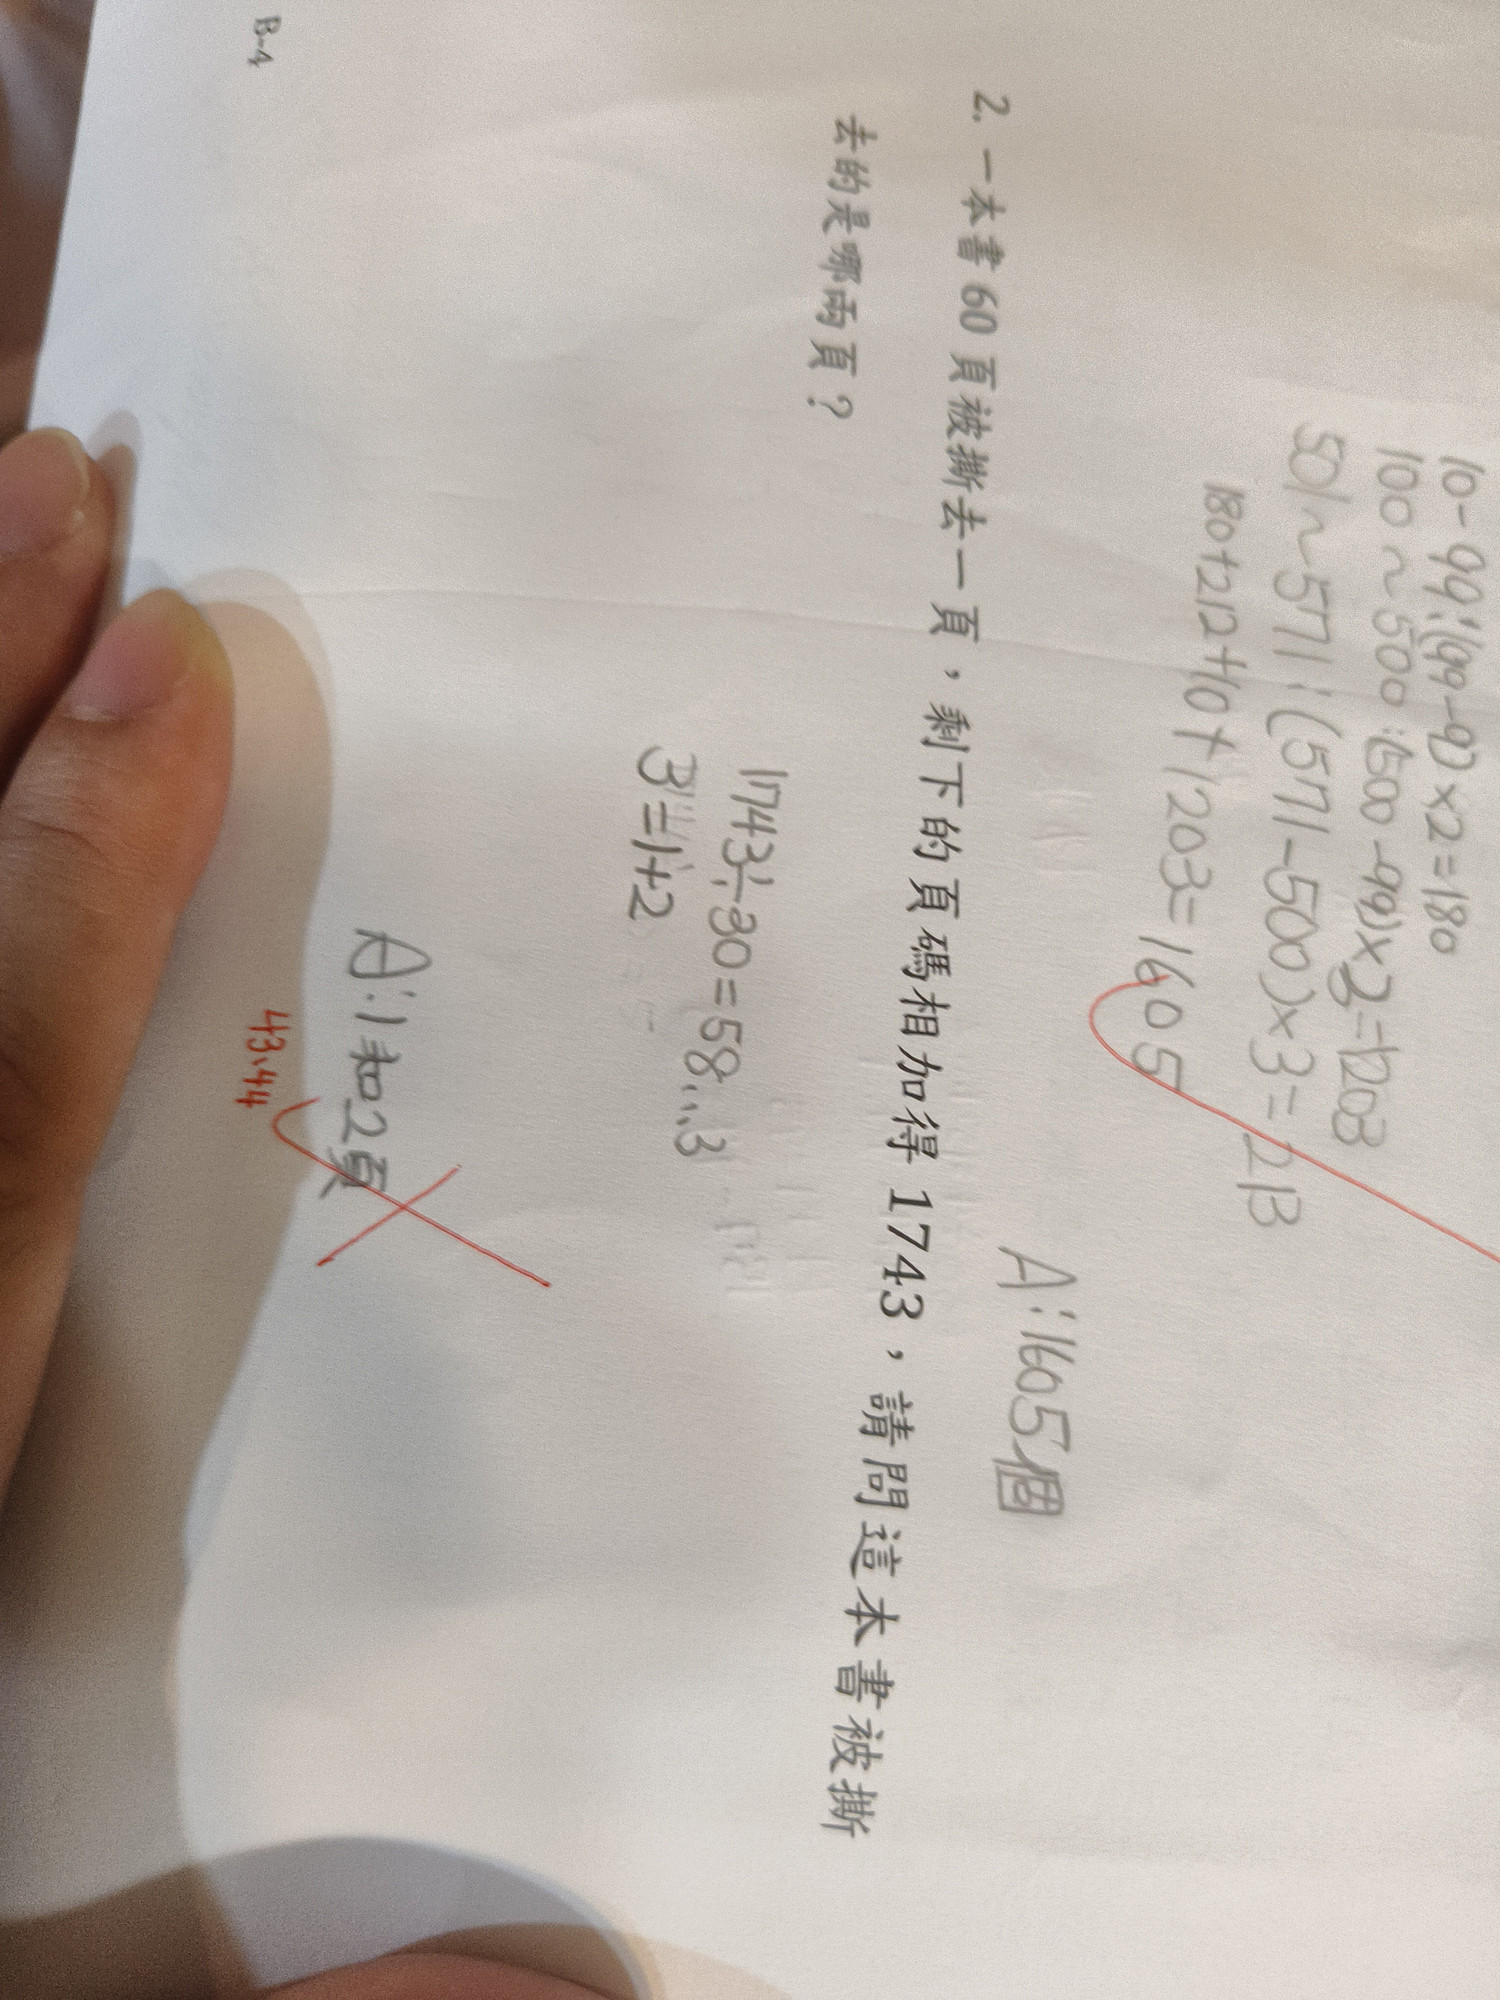 10-99:(99-9)×2=180
100~500:(500-99)×3=1203
501~571:(571-500)×3=213
180+212+10+1203=1605
A:1605個
2. 一本書60頁被撕去一頁，剩下的頁碼相加得1743，請問這本書被撕
去的是哪兩頁？
1743÷30=58...3
3=1+2
A:1和2頁
43、44
B-4